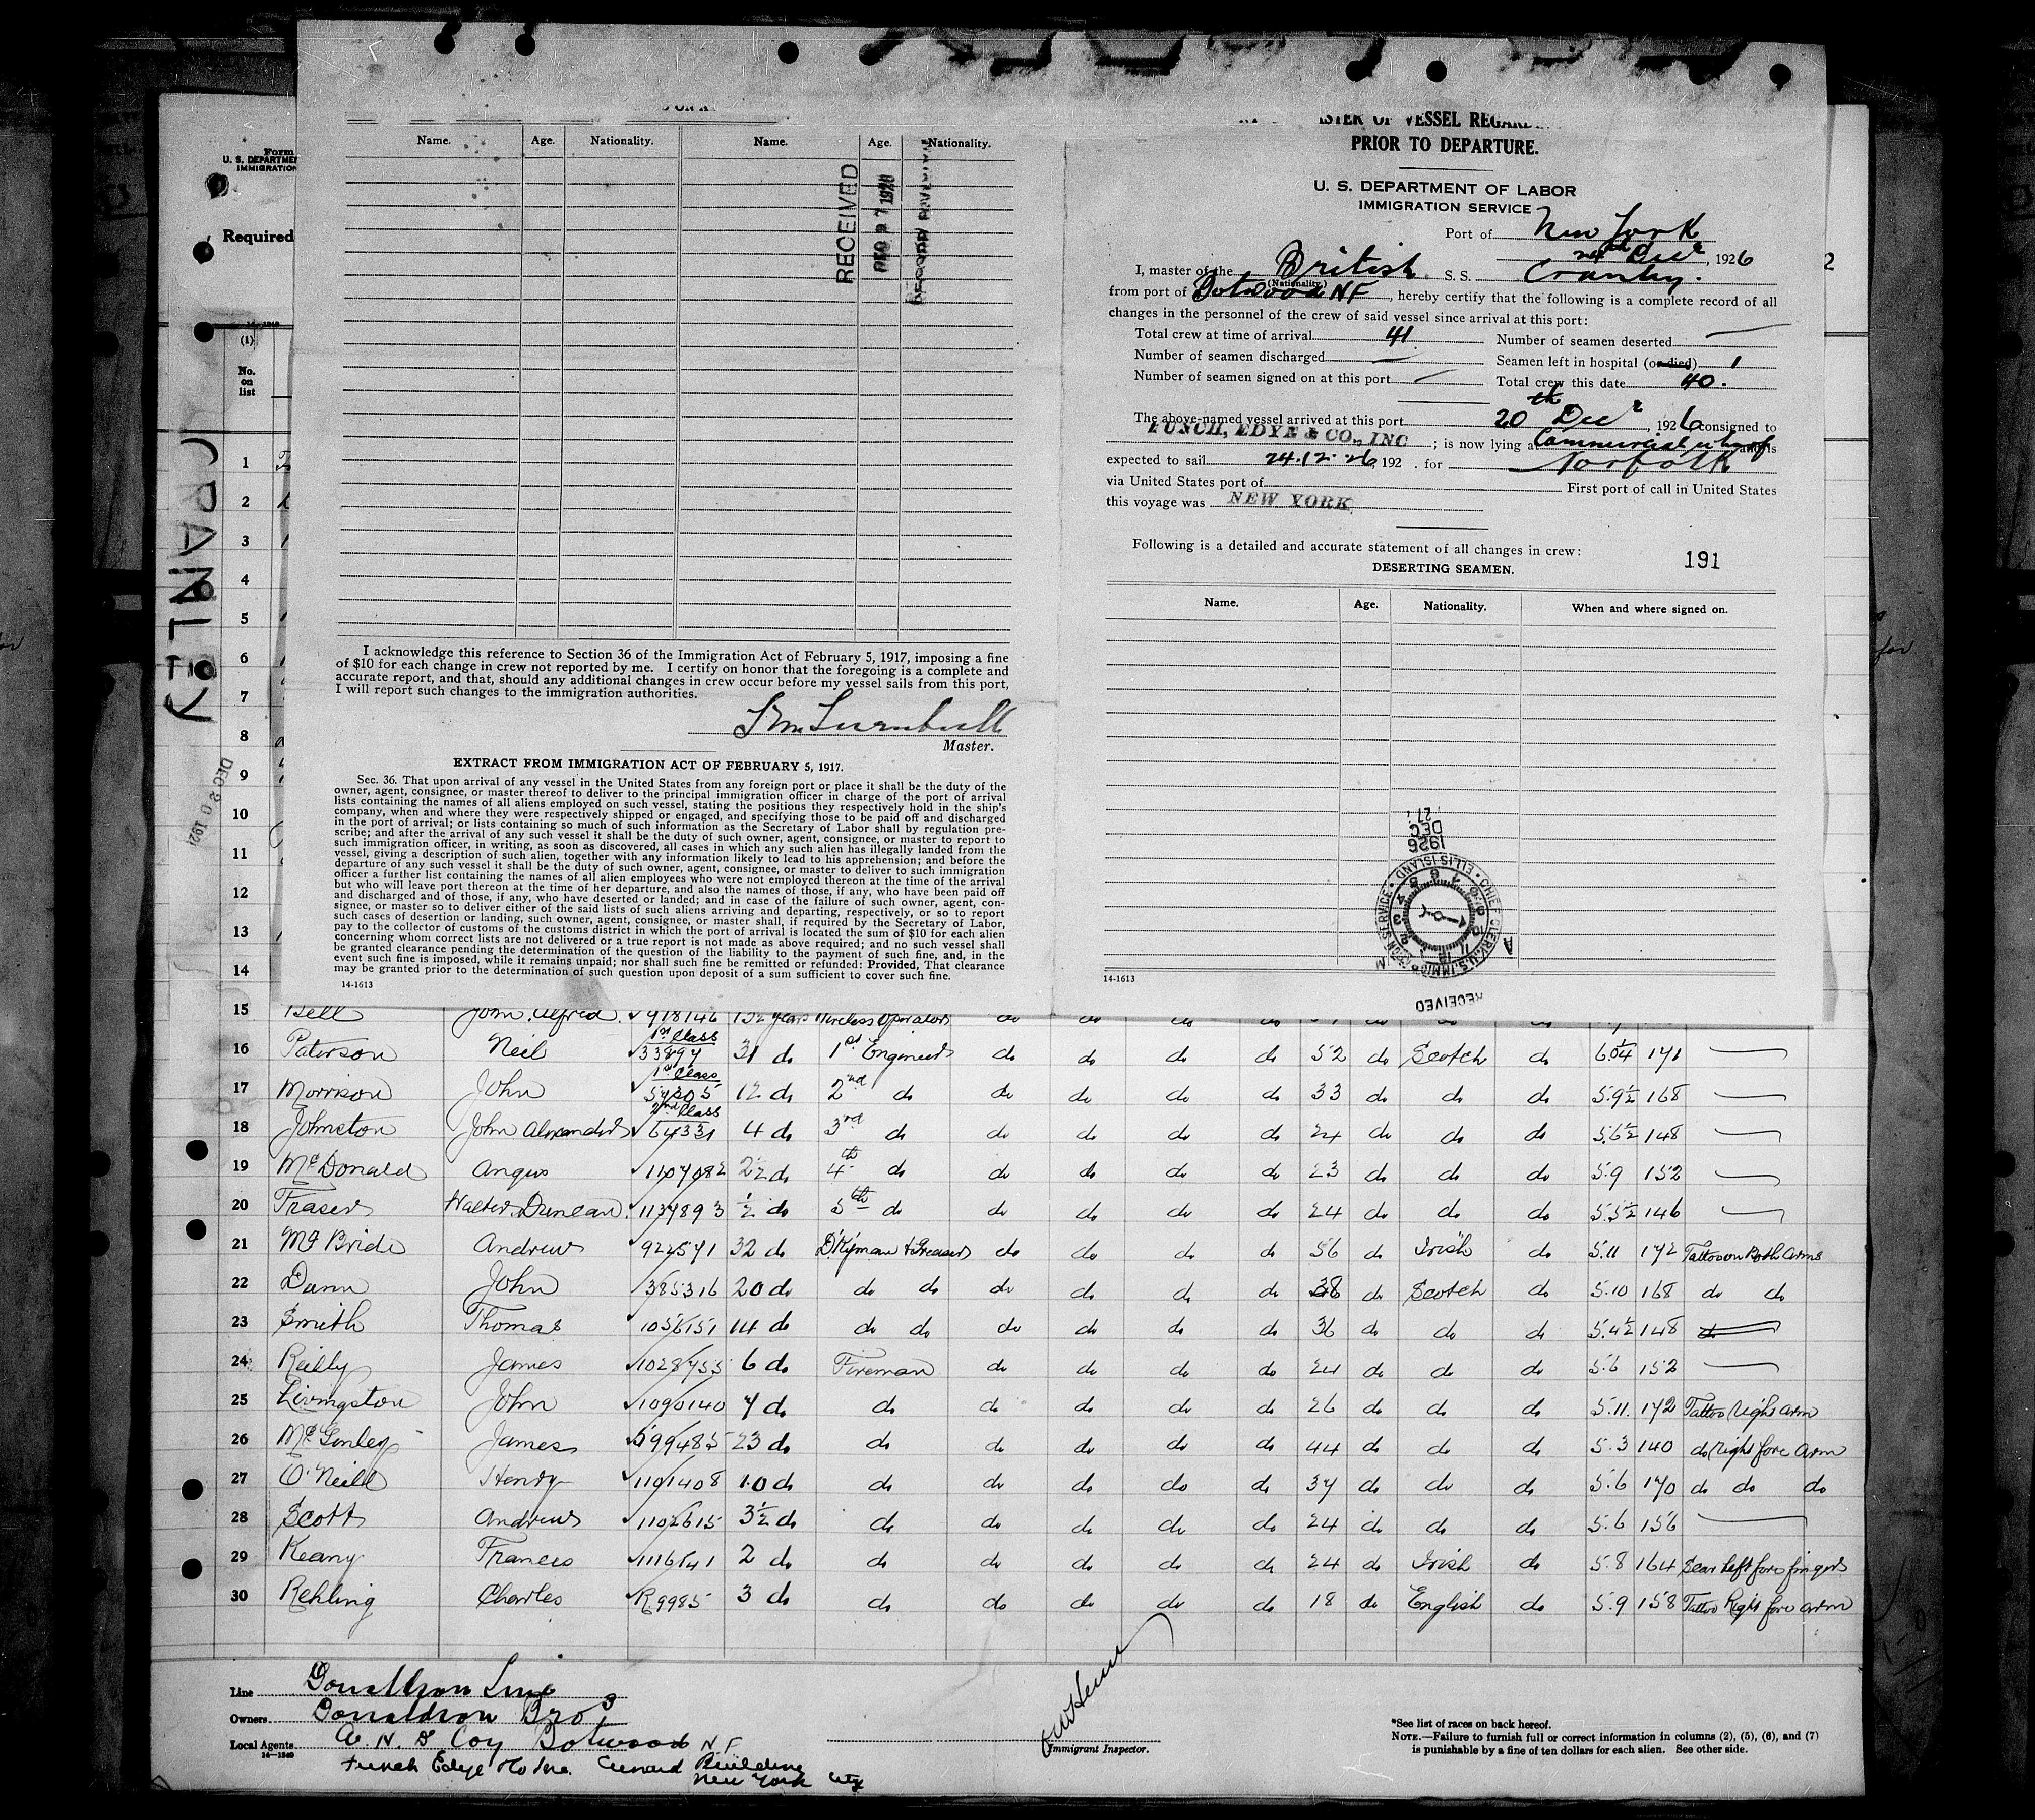 Name. Age. Nationality. Name. Age. Nationality.
RECEIVED
I acknowledge this reference to Section 36 of the Immigration Act of February 5, 1917, imposing a fine
of $10 for each change in crew not reported by me. I certify on honor that the foregoing is a complete and
accurate report, and that, should any additional changes in crew occur before my vessel sails from this port,
I will report such changes to the immigration authorities.
Turnbull
Master.
EXTRACT FROM IMMIGRATION ACT OF FEBRUARY 5, 1917.
Sec. 36. That upon arrival of any vessel in the United States from any foreign port or place it shall be the duty of the
owner, agent, consignee, or master thereof to deliver to the principal immigration officer in charge of the port of arrival
lists containing the names of all aliens employed on such vessel, stating the positions they respectively hold in the ship's
company, when and where they were respectively shipped or engaged, and specifying those to be paid off and discharged
in the port of arrival; or lists containing so much of such information as the Secretary of Labor shall by regulation pre-
scribe; and after the arrival of any such vessel it shall be the duty of such owner, agent, consignee, or master to report to
such immigration officer, in writing, as soon as discovered, all cases in which any such alien has illegally landed from the
vessel, giving a description of such alien, together with any information likely to lead to his apprehension; and before the
departure of any such vessel it shall be the duty of such owner, agent, consignee, or master to deliver to such immigration
officer a further list containing the names of all alien employees who were not employed thereon at the time of the arrival
but who will leave port thereon at the time of her departure, and also the names of those, if any, who have been paid off
and discharged and of those, if any, who have deserted or landed; and in case of the failure of such owner, agent, con-
signee, or master so to deliver either of the said lists of such aliens arriving and departing, respectively, or so to report
such cases of desertion or landing, such owner, agent, consignee, or master shall, if required by the Secretary of Labor,
pay to the collector of customs of the customs district in which the port of arrival is located the sum of $10 for each alien
concerning whom correct lists are not delivered or a true report is not made as above required; and no such vessel shall
be granted clearance pending the determination of the question of the liability to the payment of such fine, and, in the
event such fine is imposed, while it remains unpaid; nor shall such fine be remitted or refunded: Provided, That clearance
may be granted prior to the determination of such question upon deposit of a sum sufficient to cover such fine.
14-1613
VESSEL
PRIOR TO DEPARTURE.
U. S. DEPARTMENT OF LABOR
IMMIGRATION SERVICE
Port of New York
Dec, 1926
I, master of the British S. S. Cranley.
(Nationality)
from port of Botwood NF, hereby certify that the following is a complete record of all
changes in the personnel of the crew of said vessel since arrival at this port:
Total crew at time of arrival 41. Number of seamen deserted —
Number of seamen discharged — Seamen left in hospital (or died) 1
Number of seamen signed on at this port — Total crew this date 40.
The above-named vessel arrived at this port 20th Decr, 1926 consigned to
FUNCH, EDYE & CO., INC; is now lying at Commercial wharf and is
expected to sail 24.12.26, 192 . for Norfolk
via United States port of First port of call in United States
this voyage was NEW YORK
Following is a detailed and accurate statement of all changes in crew:
191
DESERTING SEAMEN.
Name. Age. Nationality. When and where signed on.
1926
DEC
27
CHIEF CLERK, U.S. IMMIGRATION SERVICE ELLIS ISLAND
RECEIVED
14-1613
Form
U. S. DEPARTME
IMMIGRATION
Required
2
(1)
No.
on
list
CRANLEY
DEC 20 192
1
2
3
4
5
6
7
8
9
10
11
12
13
14
15 Bell John Alfred 918146 1½ years Wireless Operator do do do do
1st Class
16 Paterson Neil 33894 31 do 1st Engineer do do do do 52 do Scotch do 6.0¼ 171 —
1st Class
17 Morrison John 54205 12 do 2nd do do do do do 33 do do do 5.9½ 168 —
2nd Class
18 Johnston John Alexander 64331 4 do 3rd do do do do do 24 do do do 5.6½ 148 —
19 McDonald Angus 1107082 2½ do 4th do do do do do 23 do do do 5.9 152 —
20 Fraser Walter Duncan 1137893 ½ do 5th do do do do do 24 do do do 5.5½ 146 —
21 McBride Andrew 922571 32 do Dkyman & Greaser do do do do 56 do Irish do 5.11 172 Tattoo on Both Arms
22 Dunn John 385316 20 do do do do do do do 38 do Scotch do 5.10 168 do do
23 Smith Thomas 1056151 14 do do do do do do do 36 do do do 5.4½ 148 do
24 Reilly James 1028755 6 do Fireman do do do do 24 do do do 5.6 152 —
25 Livingston John 1090140 7 do do do do do do 26 do do do 5.11. 172 Tattoo right arm
26 McGinley James 599485 23 do do do do do do 44 do do do 5.3 140 do right fore arm
27 O'Neill Henry 1101408 10 do do do do do do 37 do do do 5.6 170 do do do
28 Scott Andrew 1102615 3½ do do do do do do 24 do do do 5.6 156 —
29 Keany Francis 1116141 2 do do do do do do 24 do Irish do 5.8 164 Scar left fore finger
30 Rehling Charles R9985 3 do do do do do do 18 do English do 5.9 158 Tattoo Right fore arm
Line Donaldson Line
Owners Donaldson Bros
Local Agents A. N. D Coy Botwood NF
14-1240
Funch Edye & Co Inc. Cunard Building
New York City
Immigrant Inspector.
*See list of races on back hereof.
NOTE.—Failure to furnish full or correct information in columns (2), (5), (6), and (7)
is punishable by a fine of ten dollars for each alien. See other side.